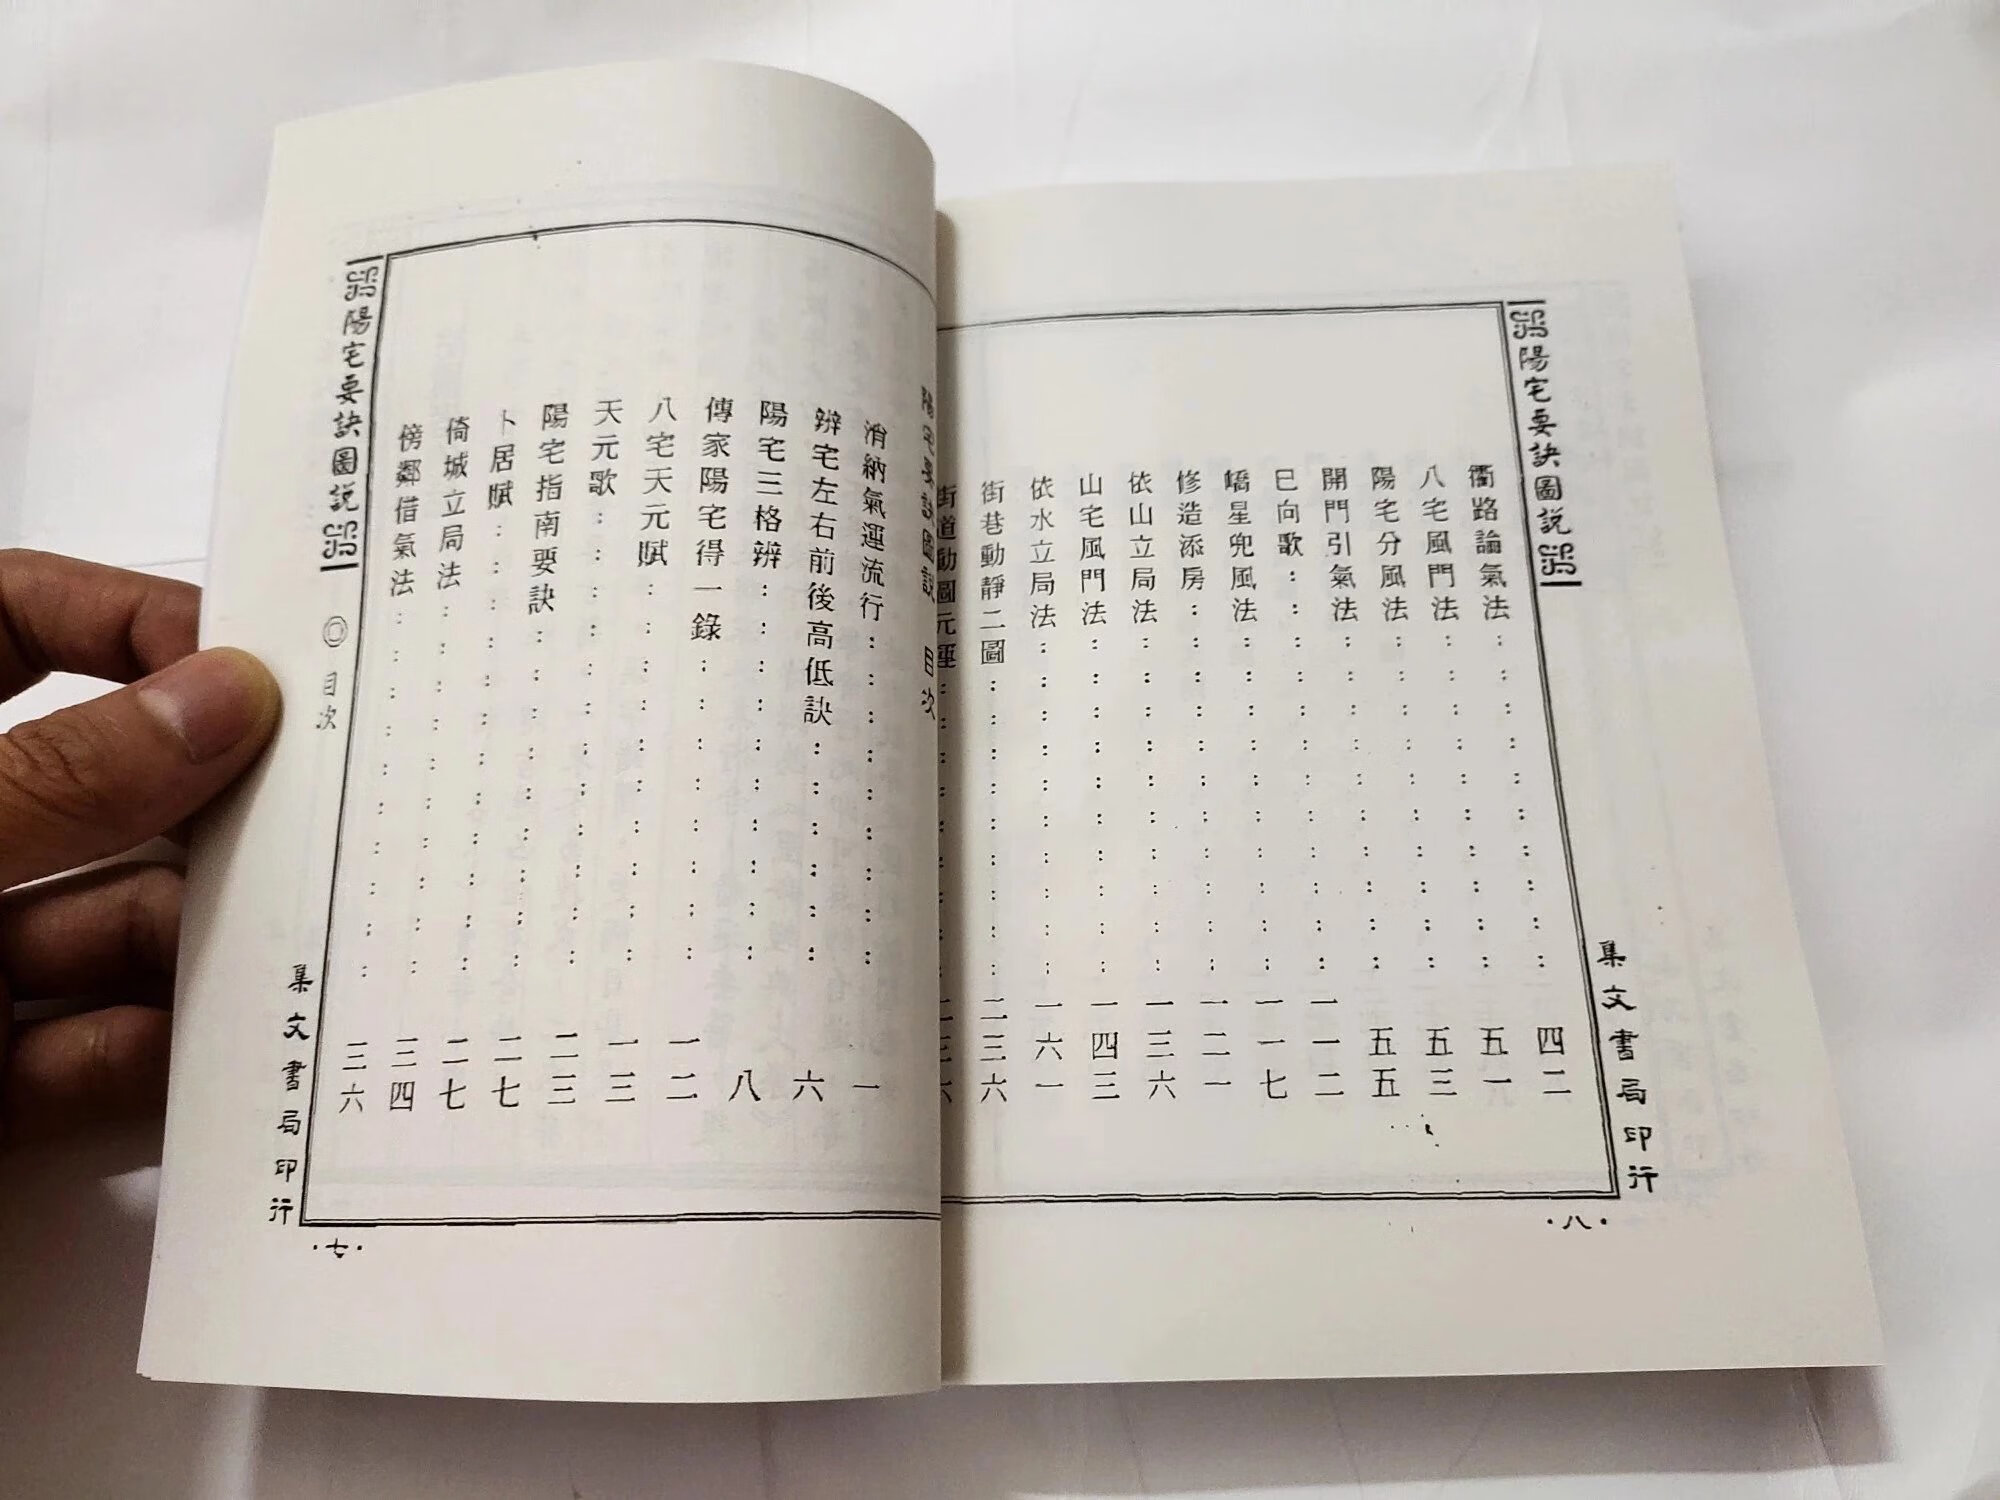 陽宅要訣圖說 目次
消納氣運流行：：：：：：：：：一
辨宅左右前後高低訣：：：：：：六
陽宅三格辨：：：：：：：：：：八
傳家陽宅得一錄：：：：：：：：一二
八宅天元賦：：：：：：：：：：一三
天元歌：：：：：：：：：：：：二三
陽宅指南要訣：：：：：：：：：二七
卜居賦：：：：：：：：：：：：二七
倚城立局法：：：：：：：：：：三四
傍鄰借氣法：：：：：：：：：：三六
陽宅要訣圖說 ◎ 目次
集文書局印行
·七·
陽宅要訣圖說
集文書局印行
衢路論氣法：：：：：：：：：：四二
八宅風門法：：：：：：：：：：五一
陽宅分風法：：：：：：：：：：五三
開門引氣法：：：：：：：：：：五五
巳向歌：：：：：：：：：：：一一二
嶠星兜風法：：：：：：：：：一一七
修造添房：：：：：：：：：：一二一
依山立局法：：：：：：：：：一三六
山宅風門法：：：：：：：：：一四三
依水立局法：：：：：：：：：一六一
街巷動靜二圖：：：：：：：：二三六
街道動圖元：：：：：：：：二三六
·八·